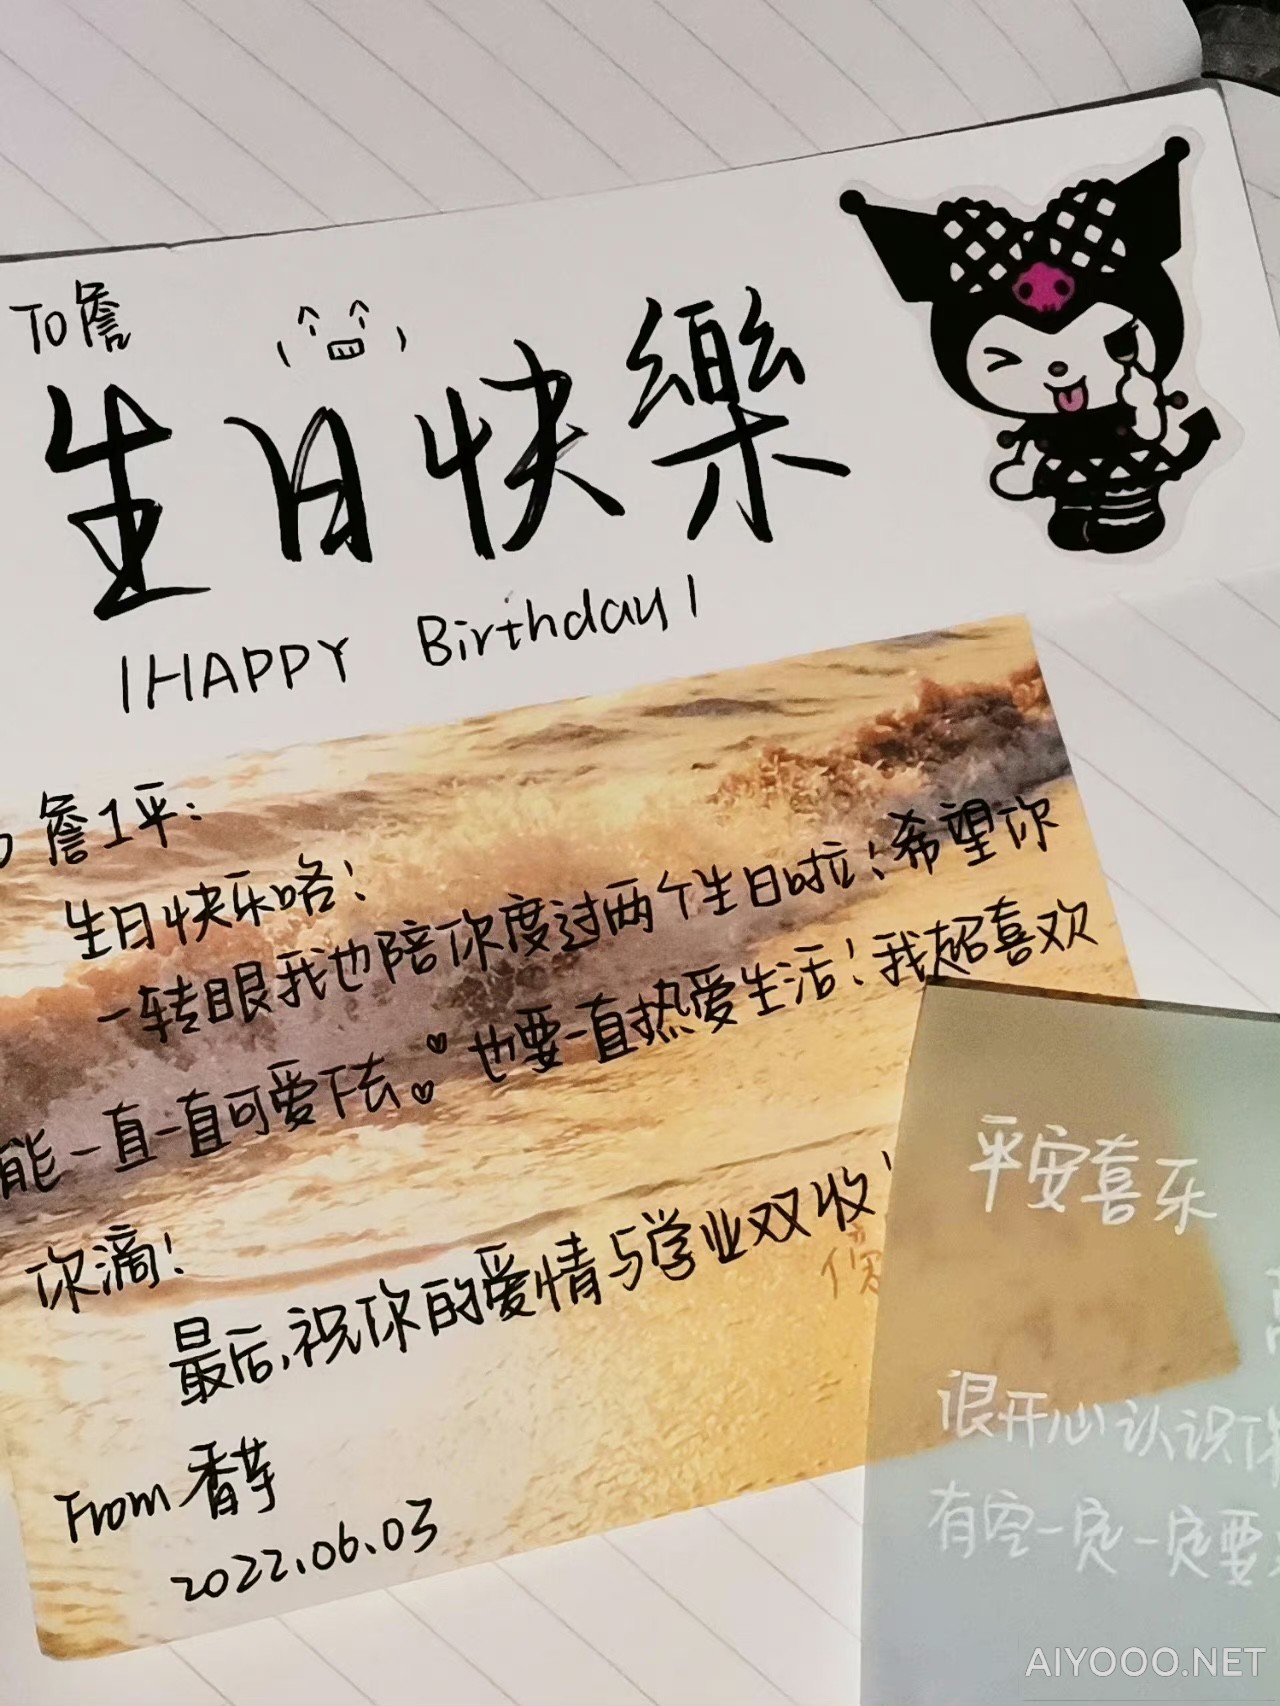 To 詹
生日快樂
HAPPY Birthday
詹1平：
生日快乐咯！
一转眼我也陪你度过两个生日啦！希望你
能一直一直可爱下去。也要一直热爱生活！我超喜欢
你滴！
最后，祝你的爱情与学业双收！
From 香芋
2022.06.03
平安喜乐
很开心认识你
有空一定一定要
AIYOOO.NET